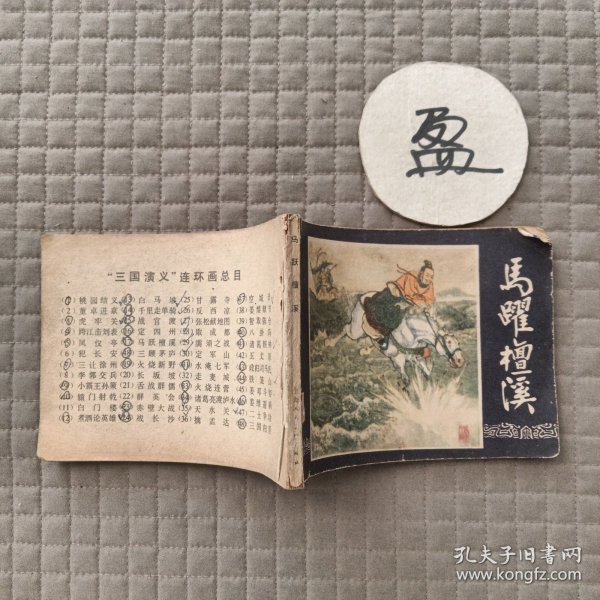 盈
马跃檀溪
馬躍檀溪
“三国演义”连环画总目
(1) 桃园结义 (13) 白马坡 (25) 甘露寺 (37) 空城计
(2) 董卓进京 (14) 千里走单骑 (26) 反西凉 (38)
(3) 虎牢关 (15) 战官渡 (27) 张松献地图 (39)
(4) 跨江击刘表 (16) 定四州 (28) 取成都 (40)
(5) 凤仪亭 (17) 马跃檀溪 (29) 濡须之战 (41)
(6) 犯长安 (18) 三顾茅庐 (30) 定军山 (42)
(7) 三让徐州 (19) 火烧新野 (31) 水淹七军 (43)
(8) 李郭交兵 (20) 长坂坡 (32) 走麦城 (44) 铁笼山
(9) 小霸王孙策 (21) 舌战群儒 (33) 火烧连营 (45)
(10) 辕门射戟 (22) 群英会 (34) 诸葛亮渡泸水 (46)
(11) 白门楼 (23) 赤壁大战 (35) 天水关 (47) 二士争功
(12) 煮酒论英雄 (24) 战长沙 (36) 擒孟达 (48) 三国归晋
孔夫子旧书网
www.kongfz.com